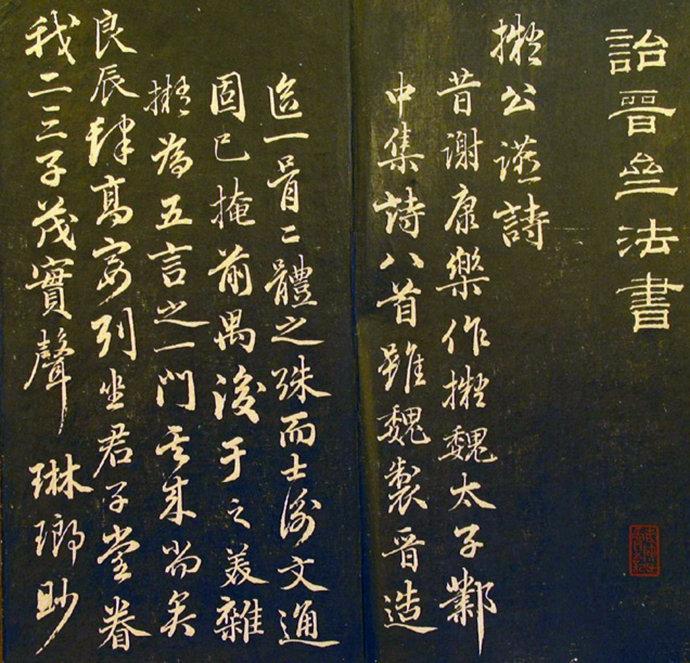 詒晉亝法書
擬公讌詩
昔謝康樂作擬魏太子鄴
中集詩八首雖魏製晉造
一二體之殊而士衡文通
固已掩前禺後于之美雜
擬為五言之一門其來尚矣
良辰肆高宴列坐君子堂眷
我二三子茂實聲琳瑯眇